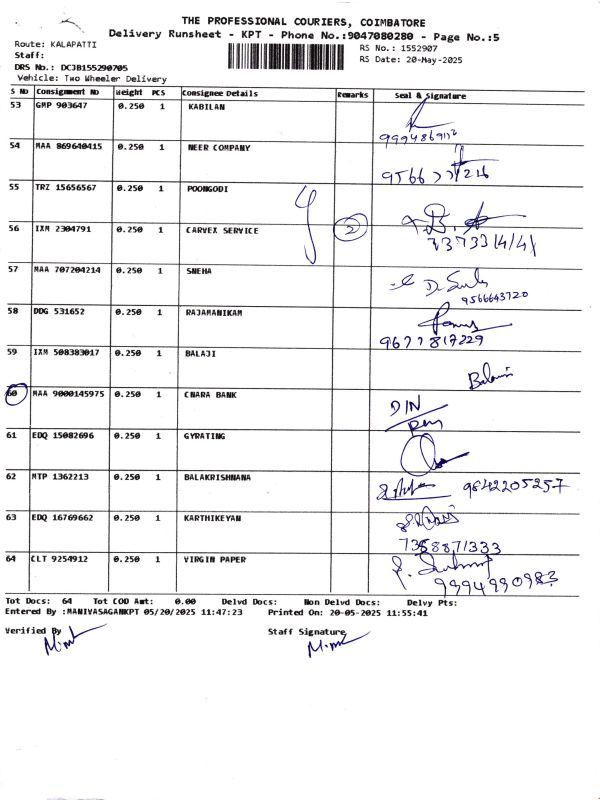 THE PROFESSIONAL COURIERS, COIMBATORE
Delivery Runsheet - KPT - Phone No.:9047080280 - Page No.:5
Route: KALAPATTI
RS No.: 1552907
Staff:
RS Date: 20-May-2025
DRS No.: DCJB155290705
Vehicle: Two Wheeler Delivery
S No Consignment No Weight PCS Consignee Details Remarks Seal & Signature
53 GMP 903647 0.250 1 KABILAN
54 MAA 869640415 0.250 1 NEER COMPANY
55 TRZ 15656567 0.250 1 POONGODI
56 IXM 2304791 0.250 1 CARVEX SERVICE 2
57 MAA 707204214 0.250 1 SNEHA
9566643720
58 DDG 531652 0.250 1 RAJAMANIKAM
9677817229
59 IXM 508383017 0.250 1 BALAJI
Balaji
60 MAA 9000145975 0.250 1 CNARA BANK
61 EDQ 15082696 0.250 1 GYRATING
62 MTP 1362213 0.250 1 BALAKRISHNANA 9842205257
63 EDQ 16769662 0.250 1 KARTHIKEYAN
7358871333
64 CLT 9254912 0.250 1 VIRGIN PAPER
9994990983
Tot Docs: 64 Tot COD Amt: 0.00 Delvd Docs: Non Delvd Docs: Delvy Pts:
Entered By :MANIVASAGANKPT 05/20/2025 11:47:23 Printed On: 20-05-2025 11:55:41
Verified By Staff Signature